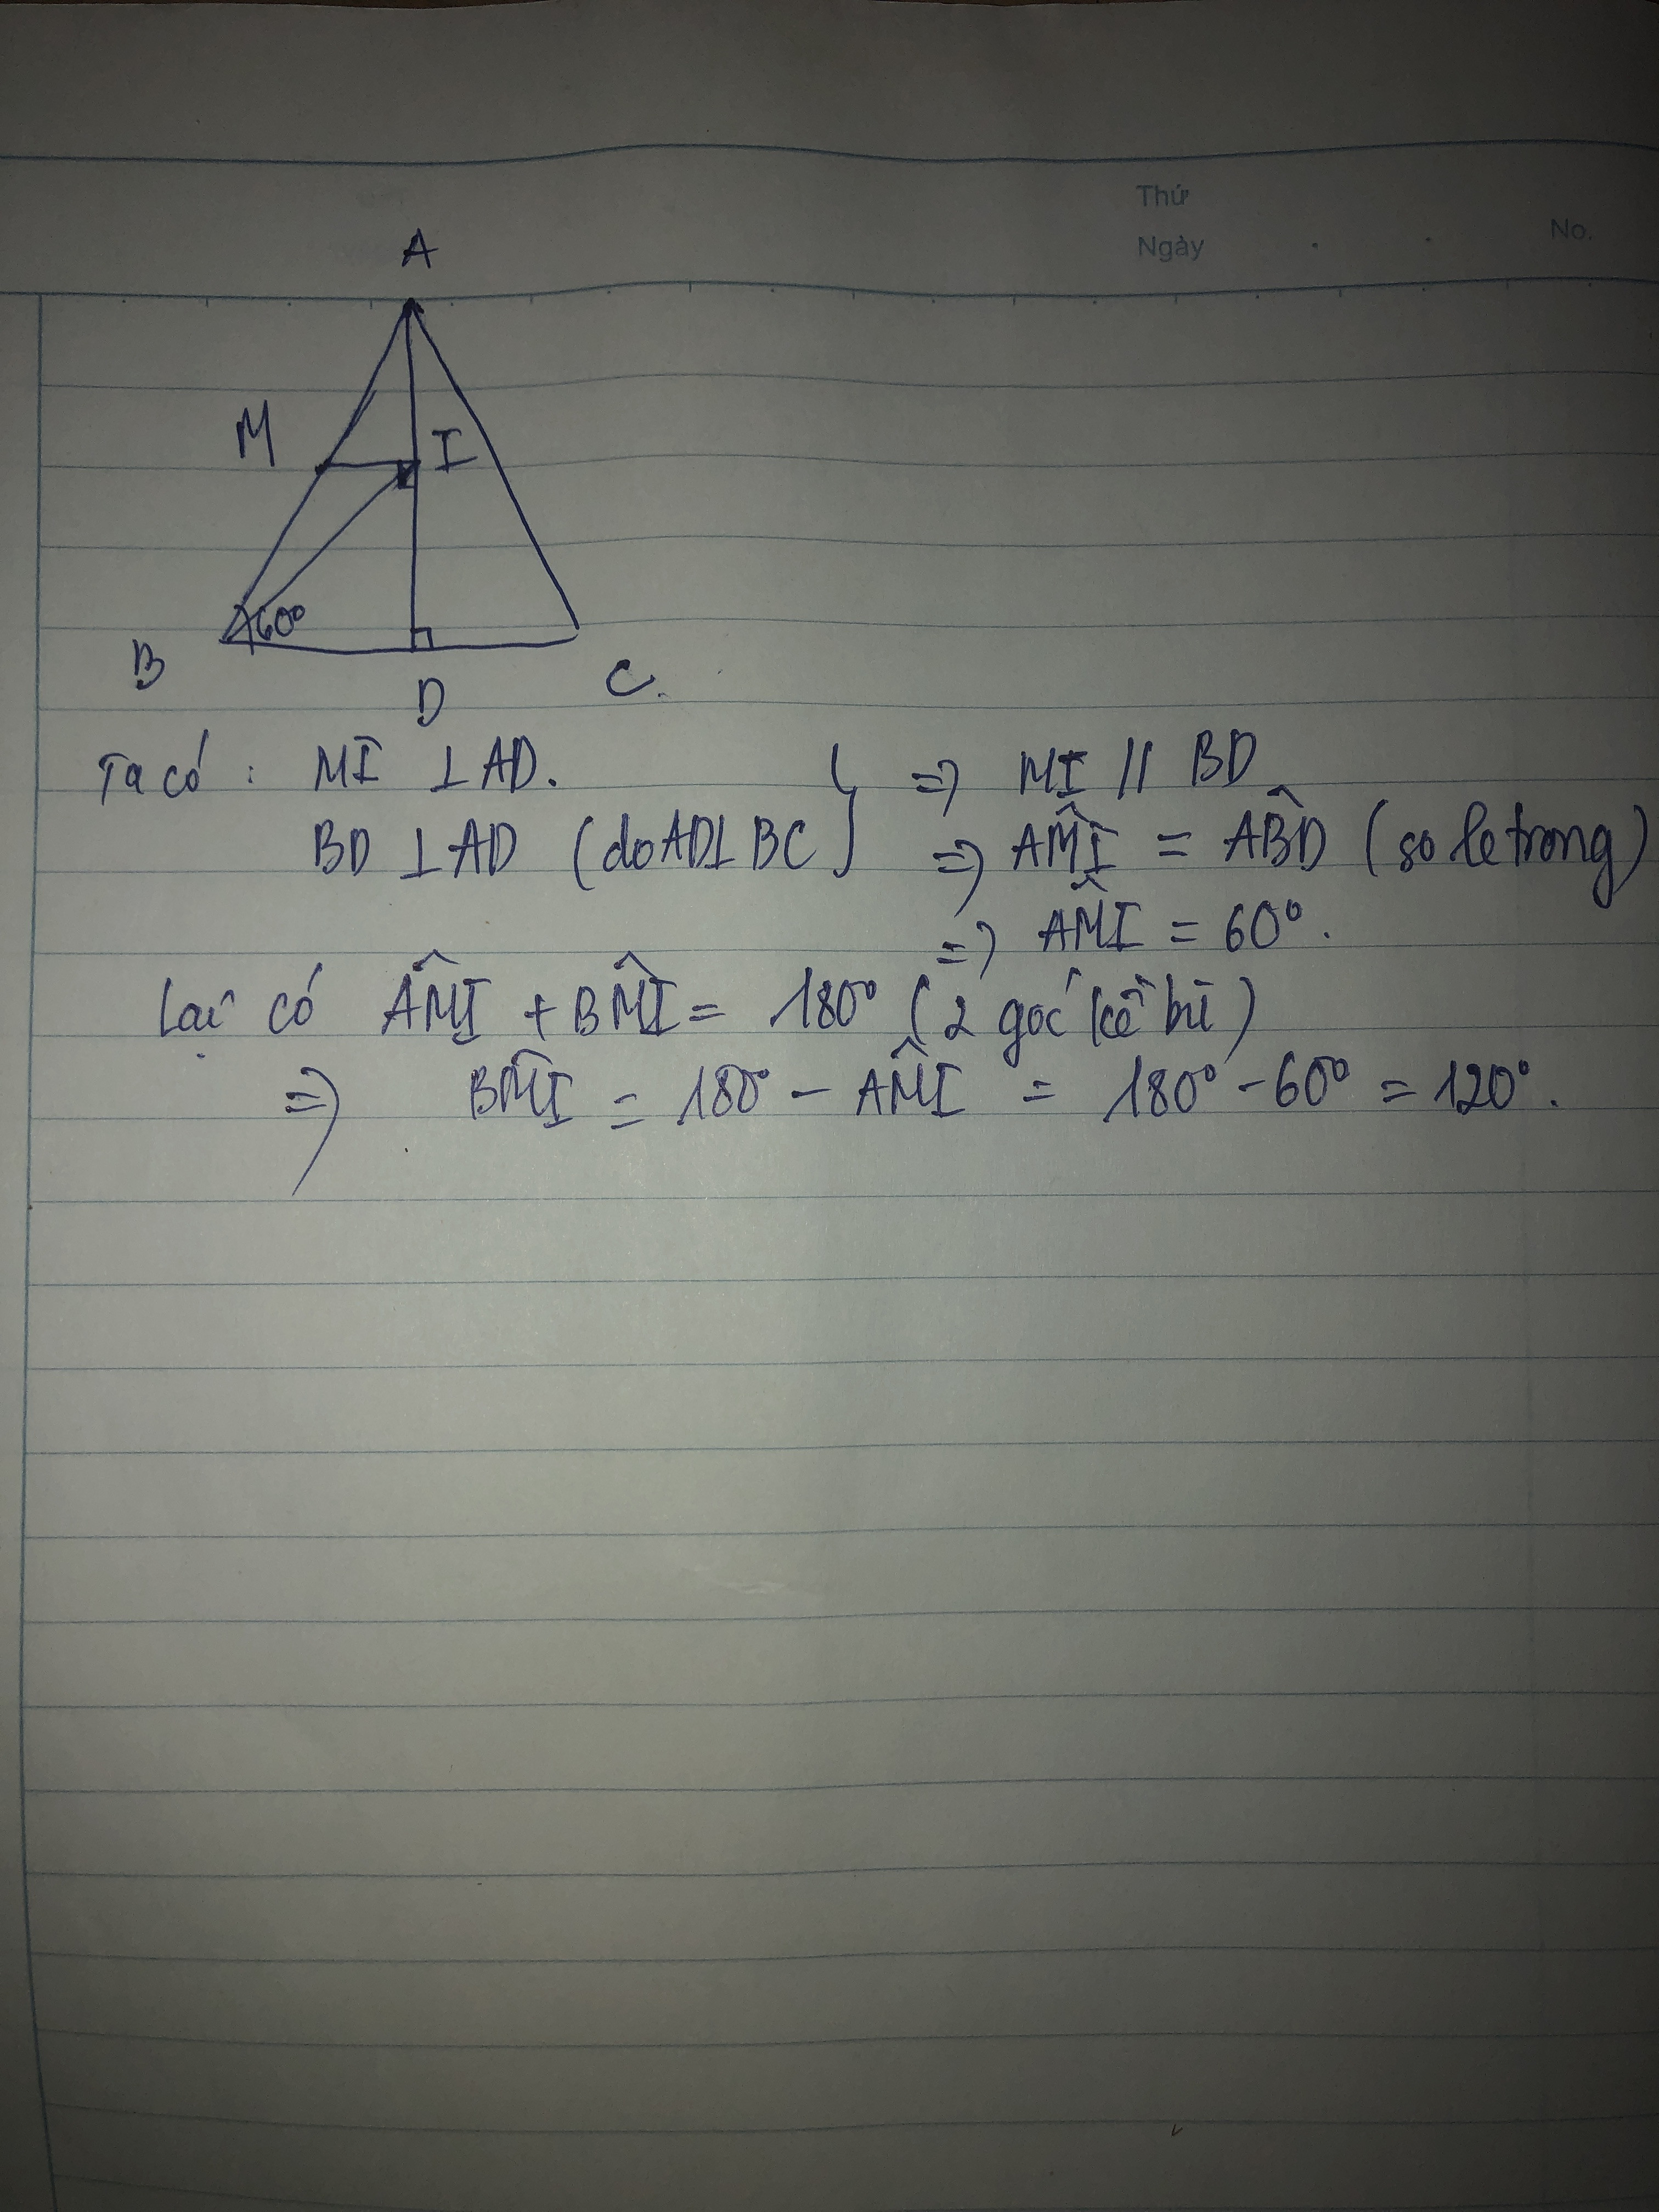 Thứ
Ngày
No.
A
M
I
60°
B
D
C.
Ta có : MI ⊥ AD. } => MI // BD
BD ⊥ AD (do AD⊥BC => AM̂I = AB̂D (so le trong)
=> AM̂I = 60°.
Lại có AM̂I + BM̂I = 180° (2 góc kề bù)
=> BM̂I = 180° - AM̂I = 180° - 60° = 120°.